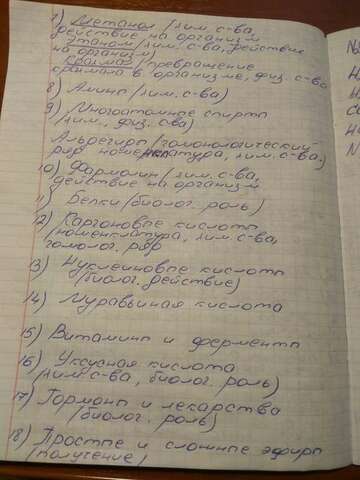 7) Метанол /хим. с-ва,
действие на организм
Этанол /хим. с-ва, действие
на организм/
Крахмал /превращение
крахмала в организме, физ. с-ва
8) Амины /хим. с-ва/
9) Многоатомные спирты
/хим, физ. с-ва/
Альдегиды /гомологический
ряд номенклатура, хим. с-ва./
10) Формалин /хим. с-ва,
действие на организм
11) Белки /биолог. роль/
12) Карбоновые кислоты
/номенклатура, хим. с-ва,
гомолог. ряд
13) Нуклеиновые кислоты
/биолог. действие/
14) Муравьиная кислота
15) Витамины и ферменты
16) Уксусная кислота
/хим. с-ва, биолог. роль/
17) Гормоны и лекарства
/биолог. роль/
18) Простые и сложные эфиры
/получение/